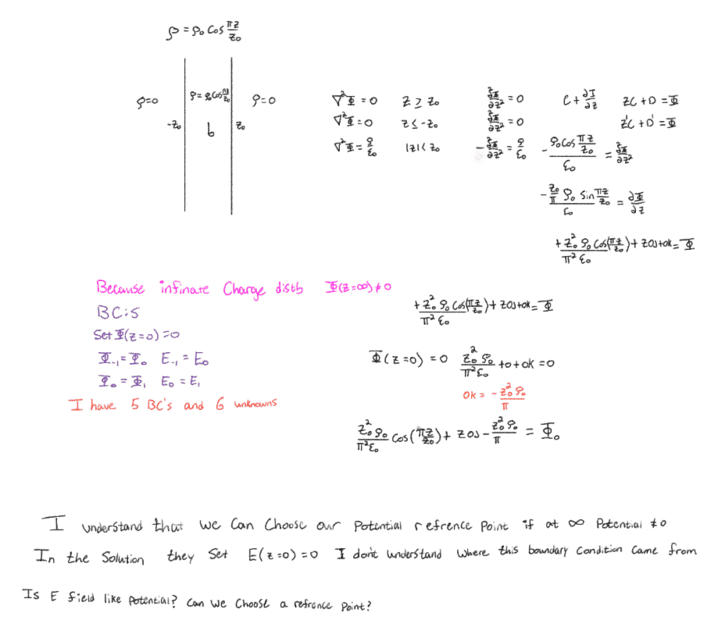 ρ = ρ₀ Cos πz/z₀
ρ=0
ρ = ρ₀ Cos πz/z₀
ρ=0
-z₀
z₀
∇²Φ = 0   z ≥ z₀   ∂²Φ/∂z² = 0   C + ∂Φ/∂z   zC + D = Φ
∇²Φ = 0   z ≤ -z₀   ∂²Φ/∂z² = 0   z'C + D' = Φ
∇²Φ = ρ/ε₀   |z| < z₀   -∂²Φ/∂z² = ρ/ε₀   -ρ₀Cos πz/z₀ / ε₀ = ∂²Φ/∂z²
-z₀/π ρ₀ Sin πz/z₀ / ε₀ = ∂Φ/∂z
+z₀² ρ₀ Cos(πz/z₀) / π² ε₀ + zω + ok = Φ
Because infinate Charge distb Φ(z=∞) ≠ 0
BC:s
Set Φ(z=0) = 0
Φ₋₁ = Φ₀   E₋₁ = E₀
Φ₀ = Φ₁   E₀ = E₁
I have 5 BC's and 6 unknowns
+z₀² ρ₀ Cos(πz/z₀) / π² ε₀ + zω + ok = Φ
Φ(z=0) = 0   z₀² ρ₀ / π² ε₀ + 0 + ok = 0
ok = -z₀² ρ₀ / π
z₀² ρ₀ / π² ε₀ cos(πz/z₀) + zω - z₀² ρ₀ / π = Φ₀
I understand that we Can Choose our Potential refrence Point if at ∞ Potential ≠ 0
In the Solution they Set E(z=0) = 0 I dont understand where this boundary Condition Came from
Is E field like potential? Can we Choose a refrence Point?